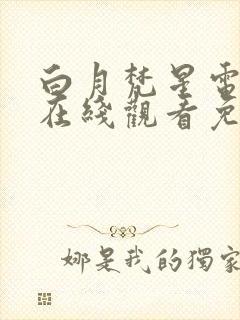 白月梵星電
在綫觀看免
娜是我的獨家